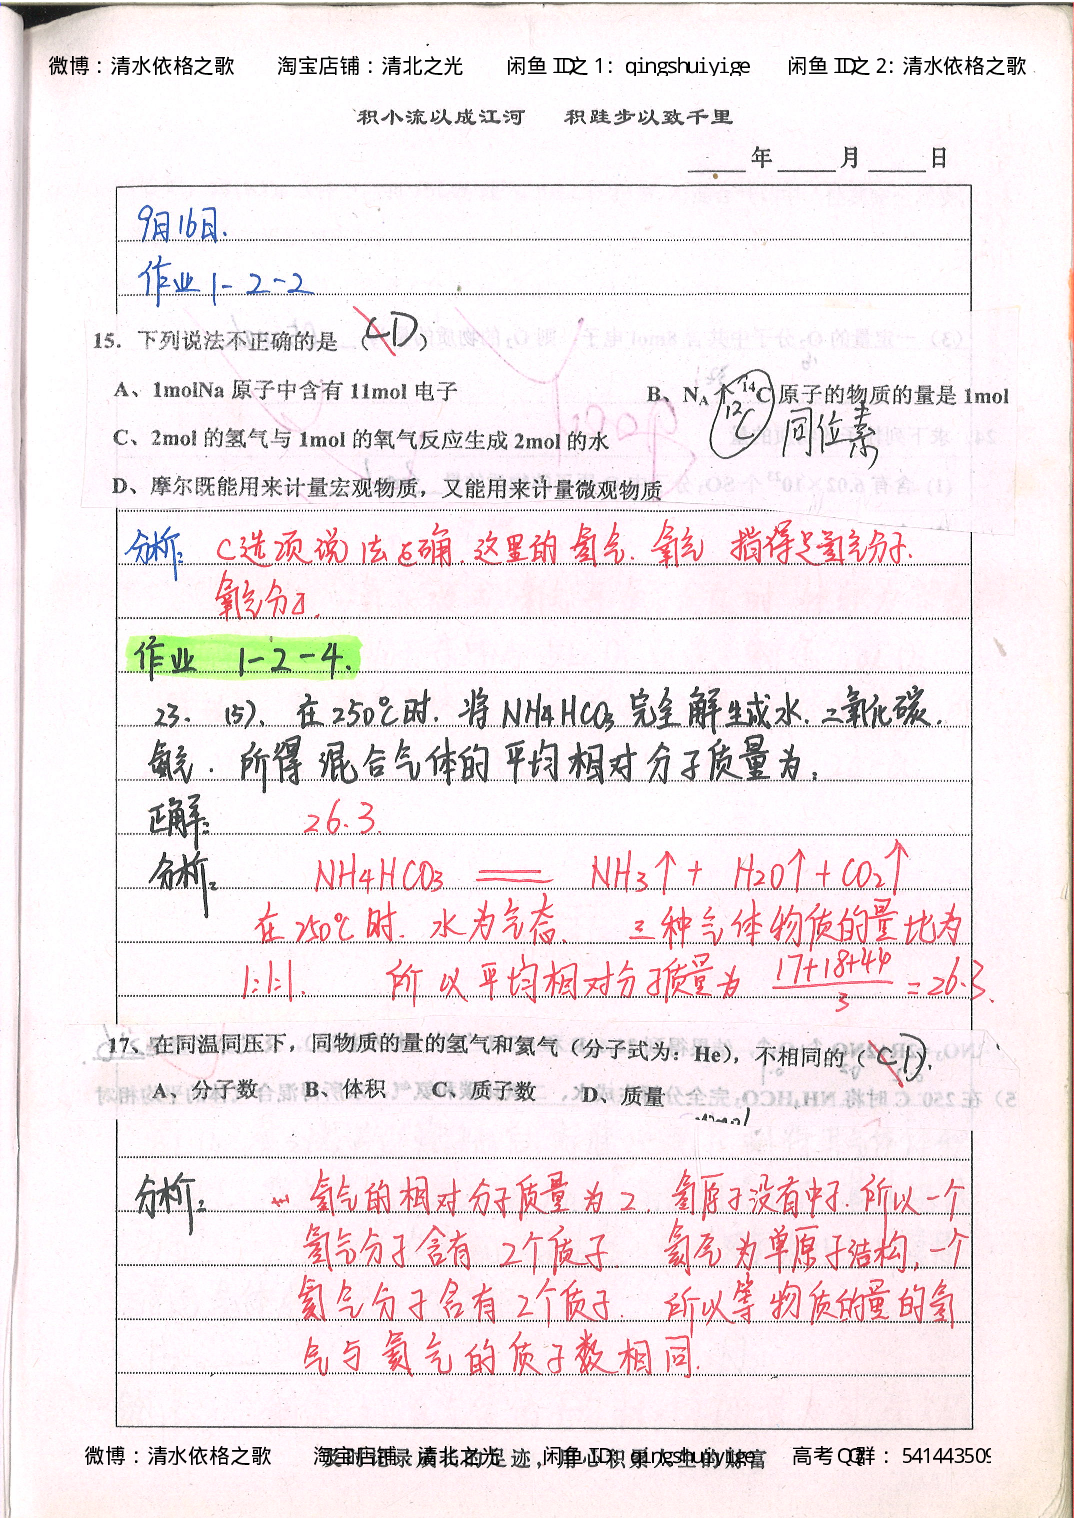 微博：清水依格之歌 淘宝店铺：清北之光 闲鱼ID之1：qingshuiyige 闲鱼ID之2：清水依格之歌
积小流以成江河 积跬步以致千里
____年____月____日
9月16日.
作业1-2-2
15．下列说法不正确的是（CD）
A、1molNa原子中含有11mol电子 B、N_A个¹⁴C原子的物质的量是1mol
¹²C 同位素
C、2mol的氢气与1mol的氧气反应生成2mol的水
D、摩尔既能用来计量宏观物质，又能用来计量微观物质
分析: C选项说法正确.这里的氢气.氧气 指得是氢气分子.
氧气分子.
作业 1-2-4.
23. (5). 在250℃时.将NH4HCO3完全解生成水.二氧化碳.
氨气.所得混合气体的平均相对分子质量为:
正解: 26.3.
分析: NH4HCO3 ══ NH3↑+ H2O↑+CO2↑
在250℃时.水为气态. 三种气体物质的量比为
1:1:1. 所以平均相对分子质量为 (17+18+44)/3 =26.3.
17、在同温同压下，同物质的量的氢气和氦气（分子式为：He），不相同的（CD）.
A、分子数 B、体积 C、质子数 D、质量
分析: 氢气的相对分子质量为2.氢原子没有中子.所以一个
氢气分子含有 2个质子 氦气为单原子结构,一个
氦气分子含有2个质子. 所以等物质的量的氢
气与氦气的质子数相同.
微博：清水依格之歌 淘宝店铺：清北之光 闲鱼ID：qingshuiyige 高考QQ群：541443509